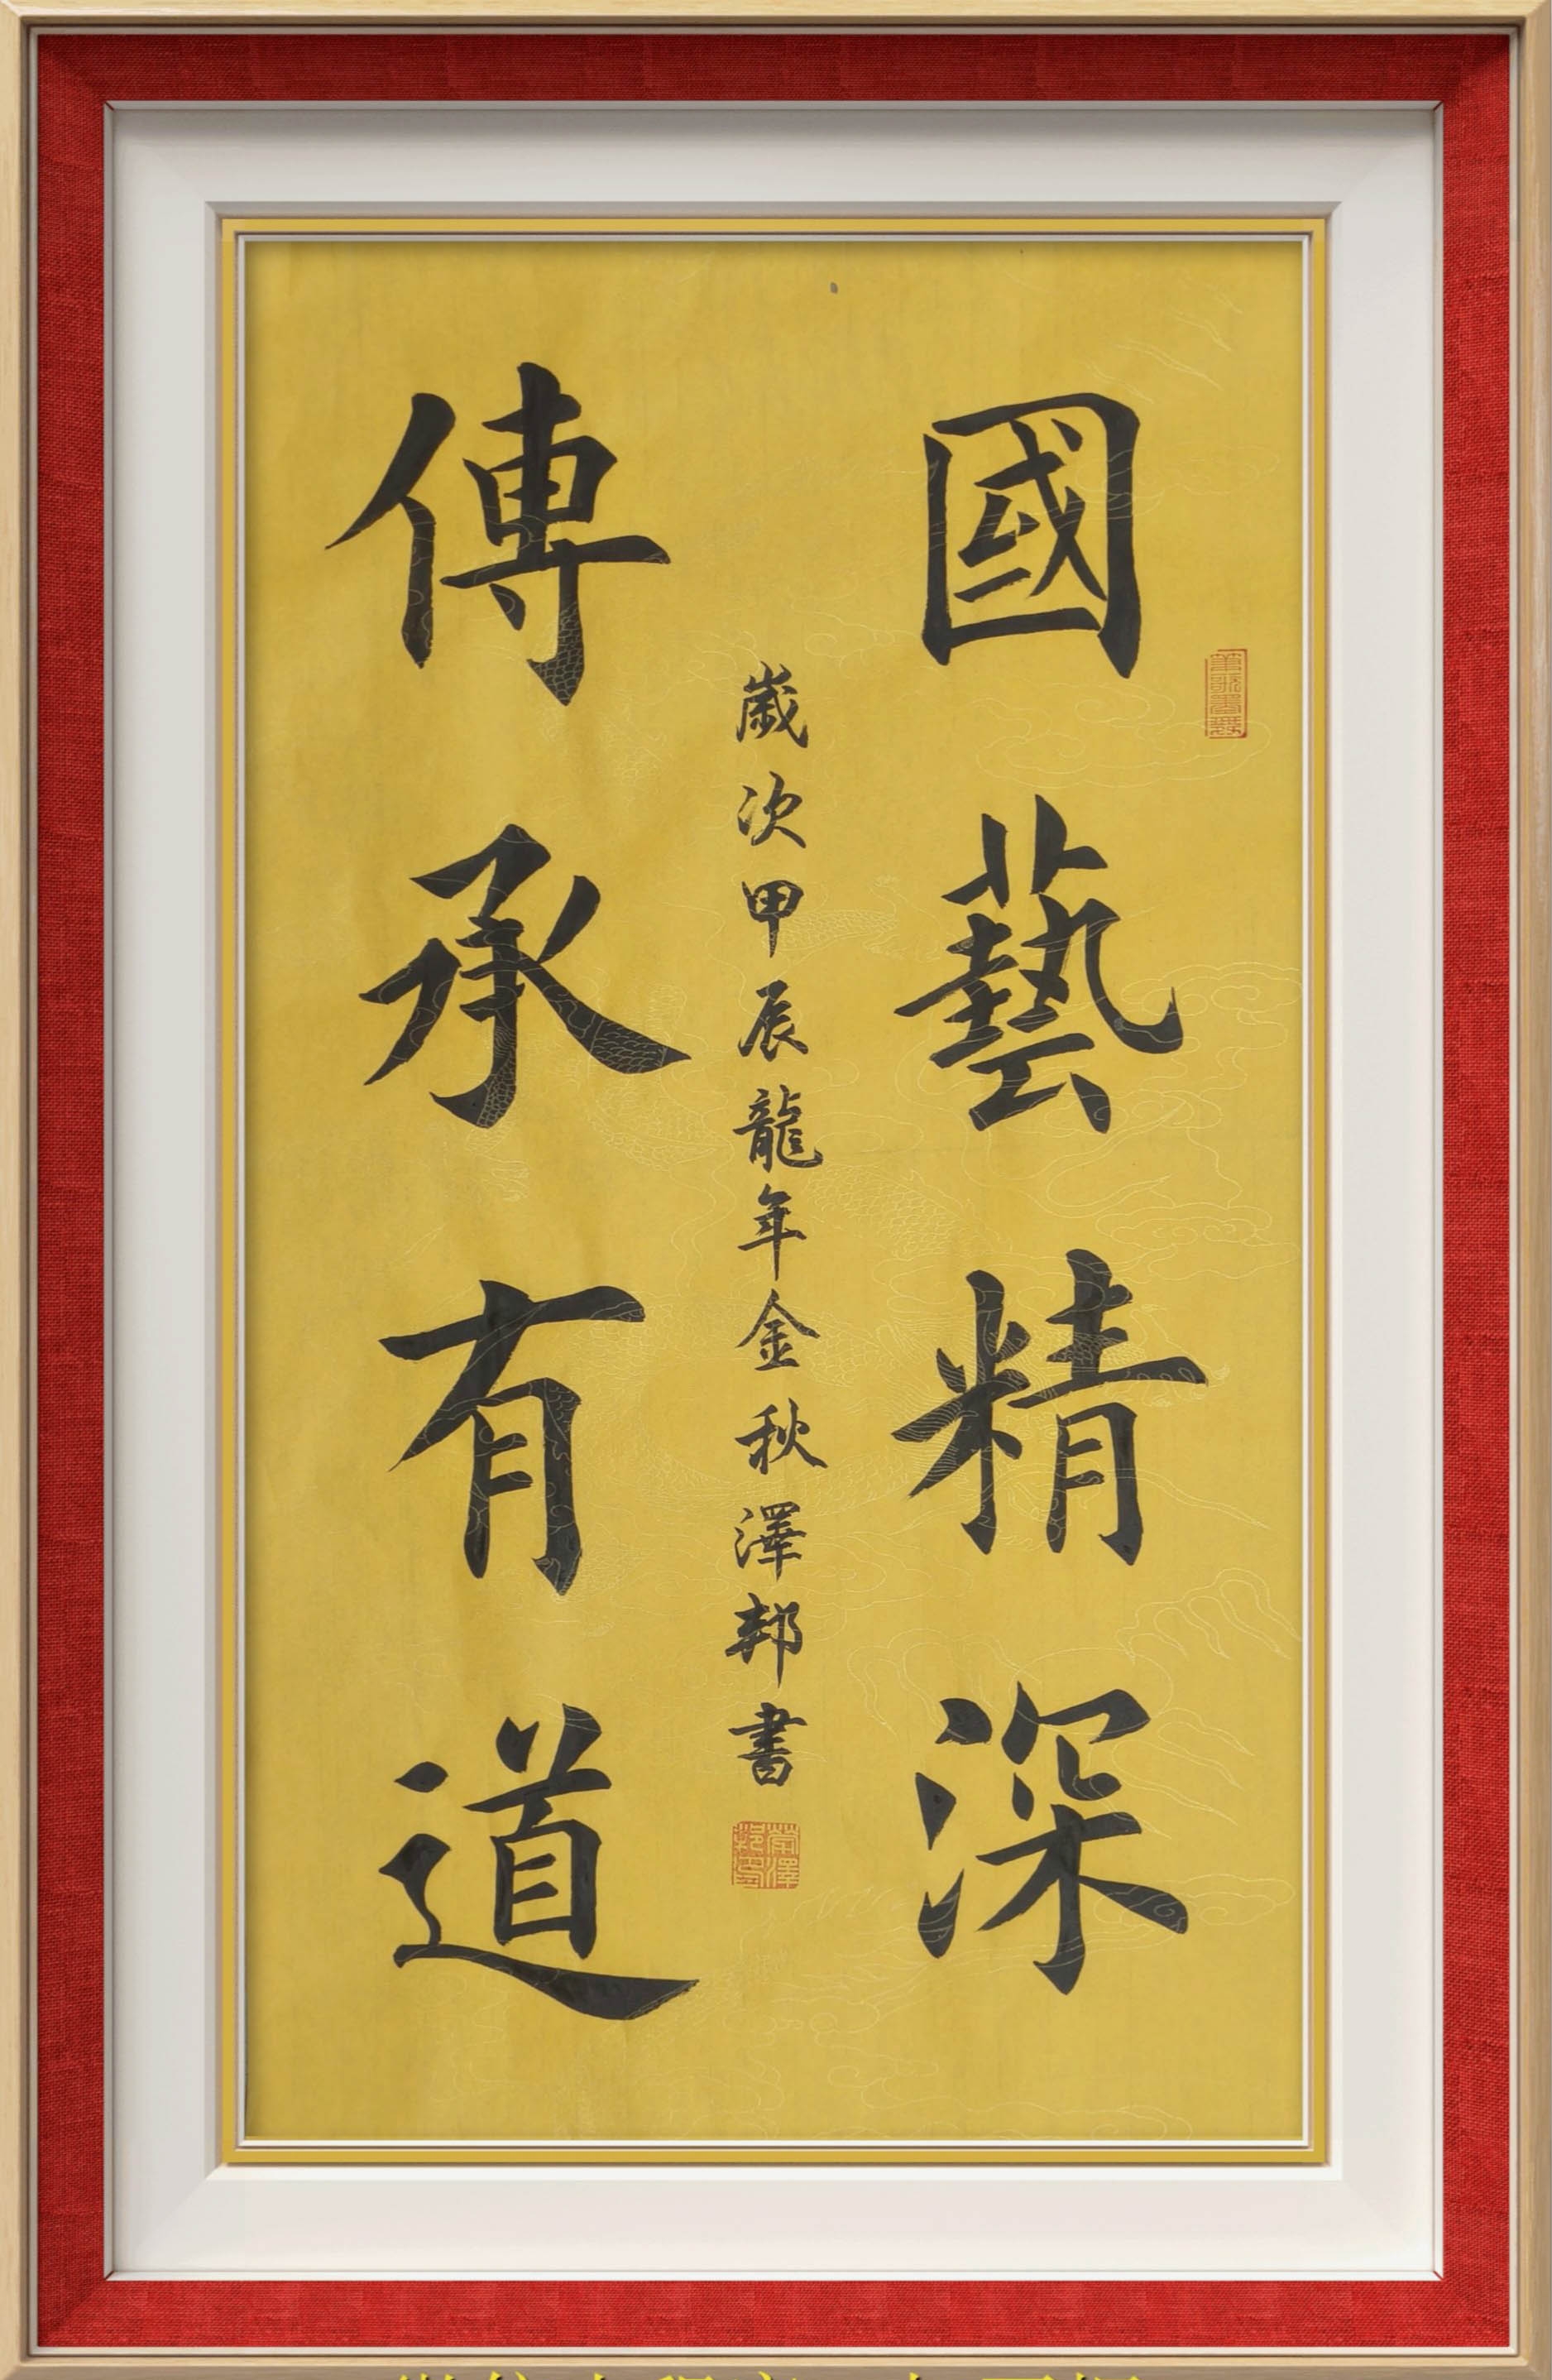 國藝精深
歲次甲辰龍年金秋澤邦書
傳承有道